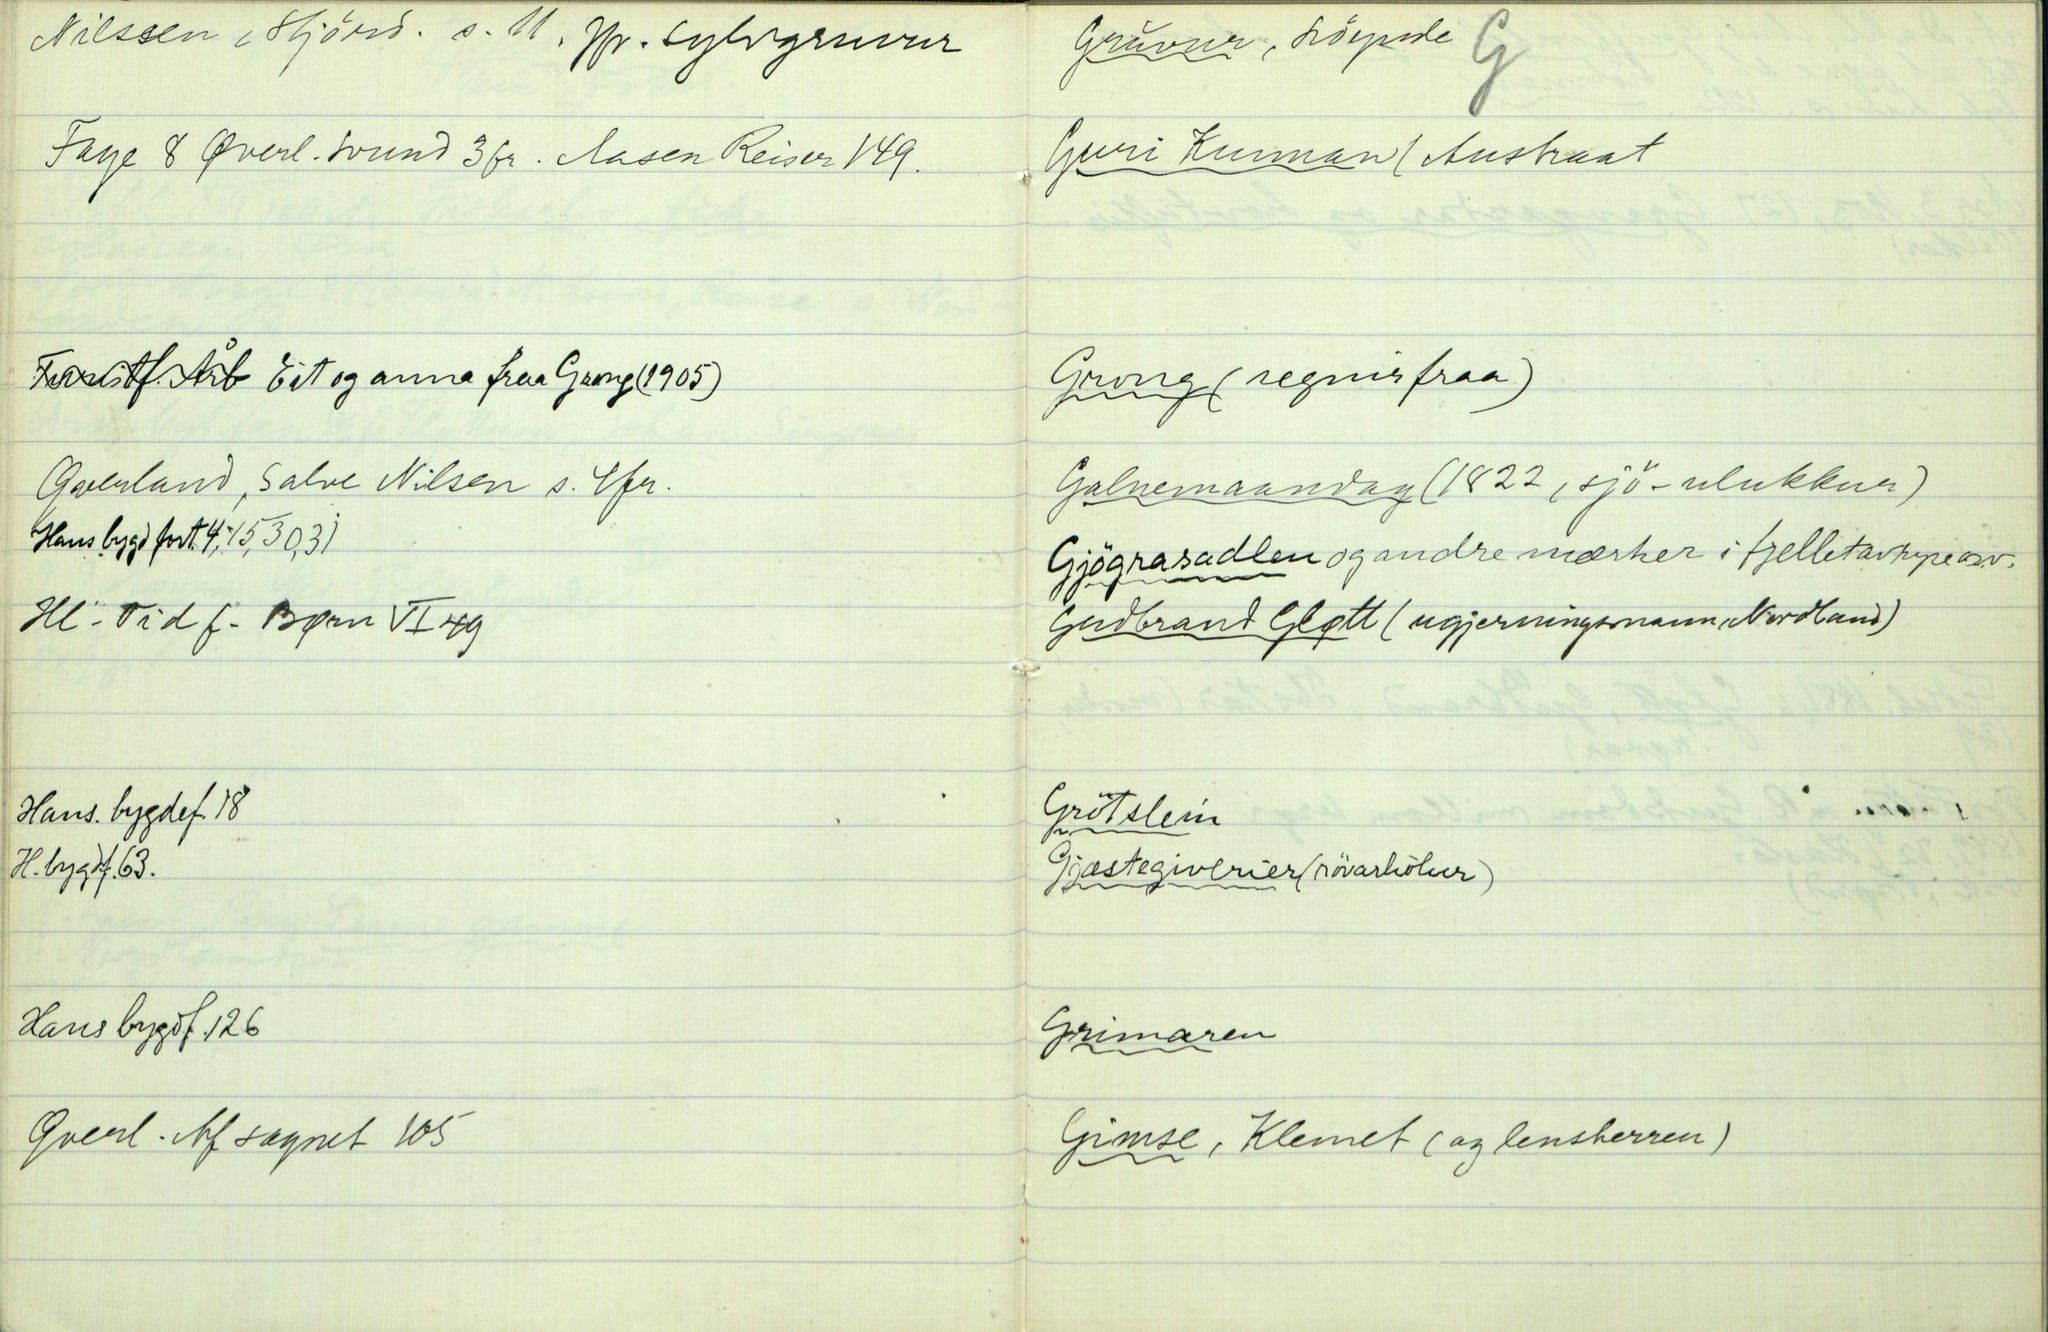 Nilssen, Stjörd. s. 11. Jfr. sylvgruvur
Faye 8 Øverl. Svund 3 fr. Aasen Reiser 149.
Eit og anna fraa Grong (1905)
Qverland, Salve Nilsen s. 4 fr.
Hans. bygd fort. 4, 15, 30, 31
Hl - Tid f - Børn VI 49
Hans. bygdef. 18
H. bygdf. 63.
Hans bygdf. 126
Qverl. Af sagnet 105
Gruvur, löynde G
Guri Kunnan (Austraat
Grong (segnir fraa)
Galnemaandag (1822, sjö-ulukkur)
Gjögrasadlen og andre mærker i fjellet av
Gudbrand Gløtt (ugjerningsmann, Nordland)
Grötslein
Gjæstegiverier (rövarholur)
Grimaren
Gimse, Klemet (og lensherren)